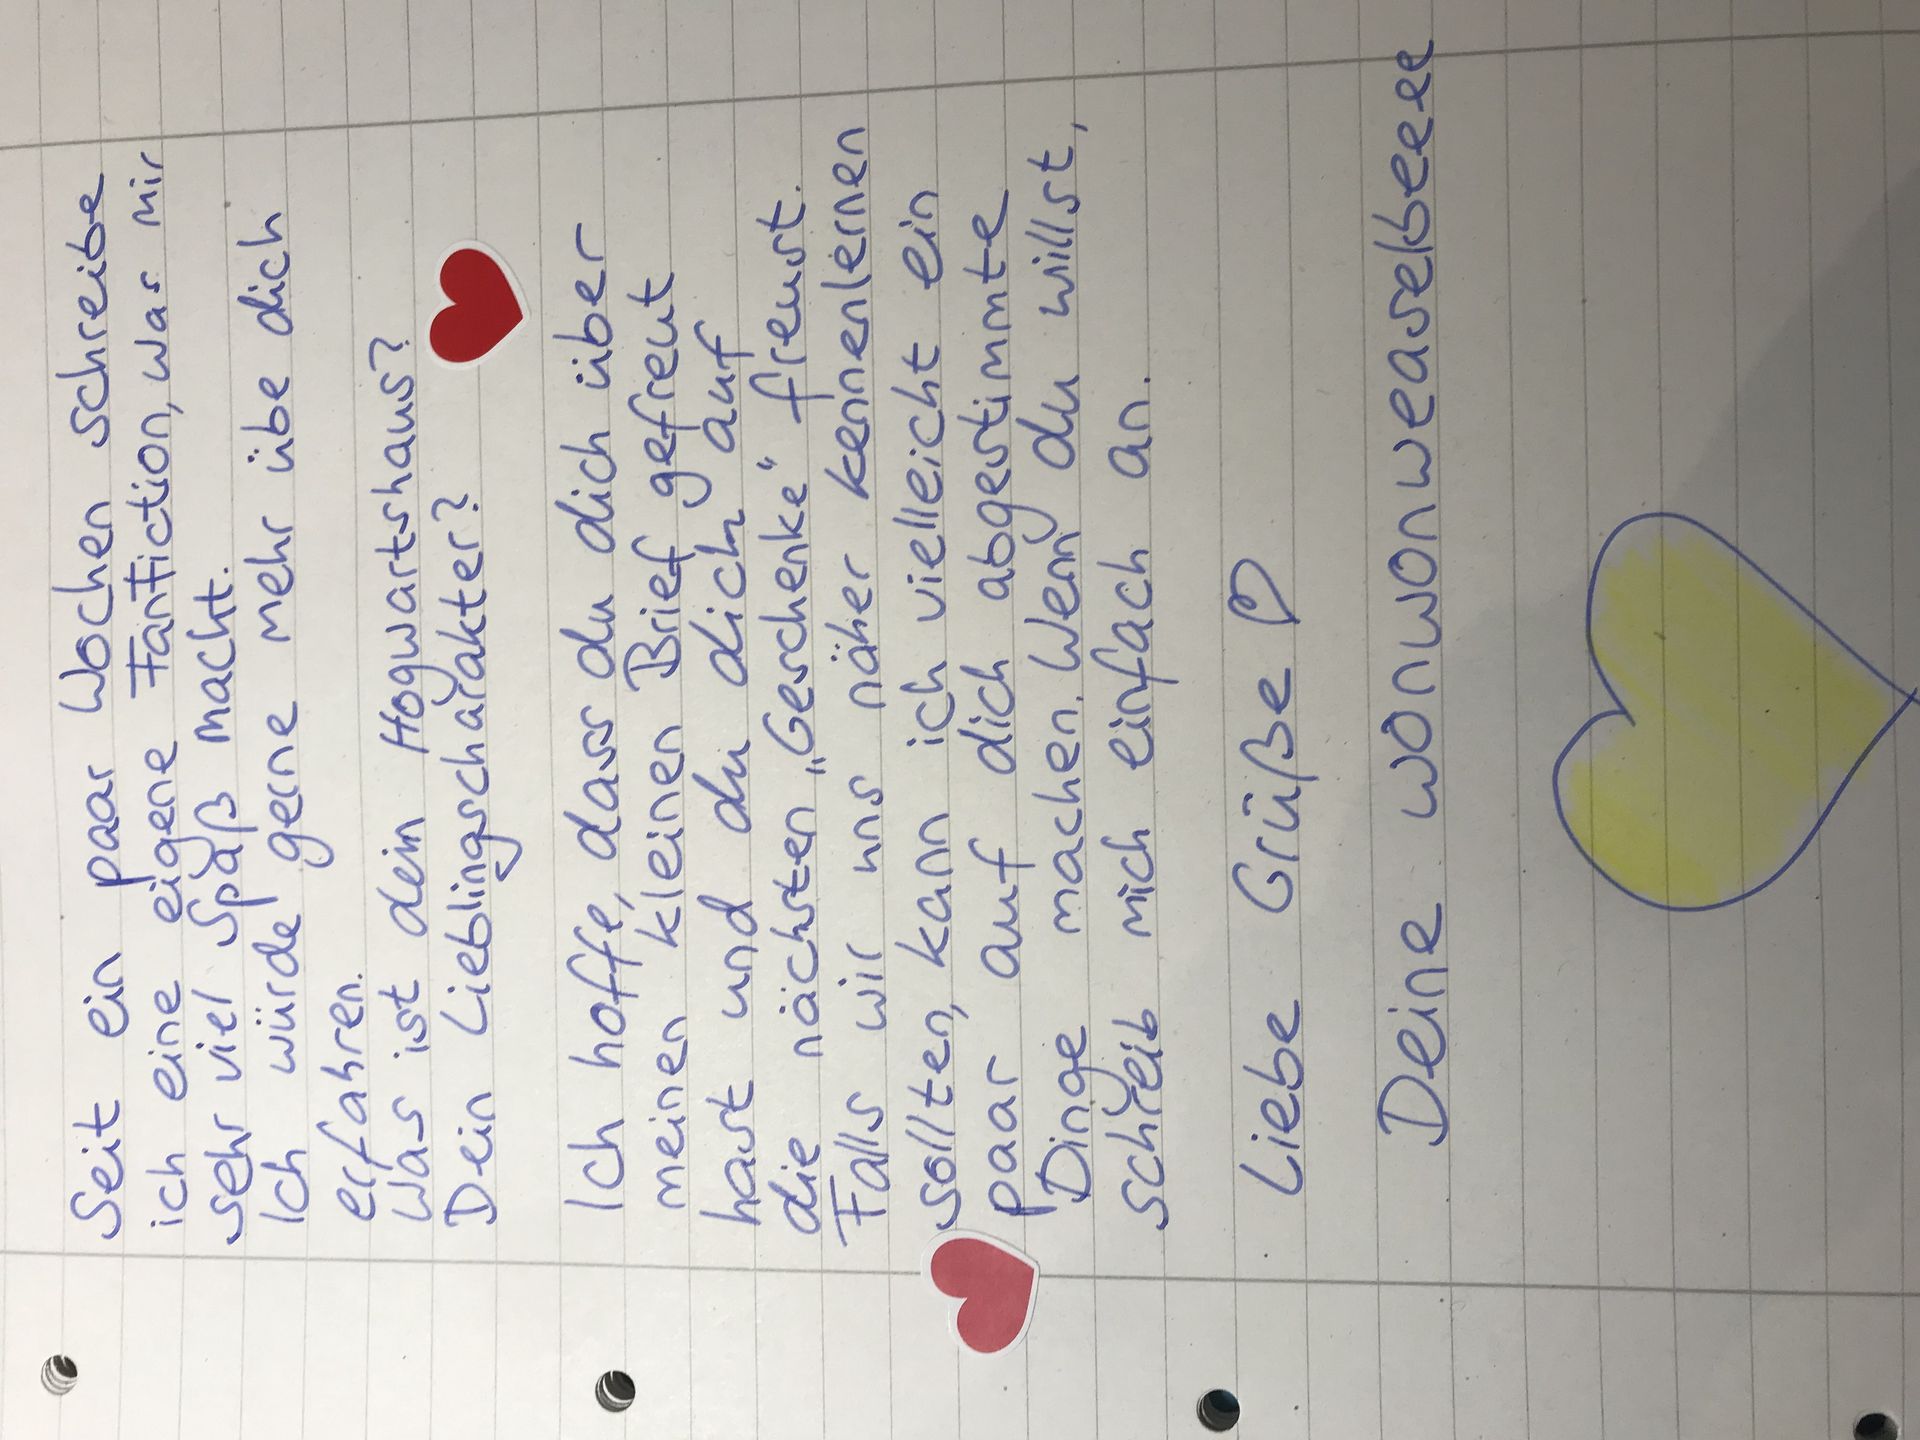 Seit ein paar Wochen schreibe
ich eine eigene Fanfiction, was mir
sehr viel Spaß macht.
Ich würde gerne mehr übe dich
erfahren.
Was ist dein Hogwartshaus?
Dein Lieblingscharakter?
Ich hoffe, dass du dich über
meinen kleinen Brief gefreut
hast und du dich auf
die nächsten „Geschenke“ freust.
Falls wir uns näher kennenlernen
sollten, kann ich vielleicht ein
paar auf dich abgestimmte
Dinge machen. Wenn du willst,
schreib mich einfach an.
Liebe Grüße ♡
Deine wonwonweaselbeee